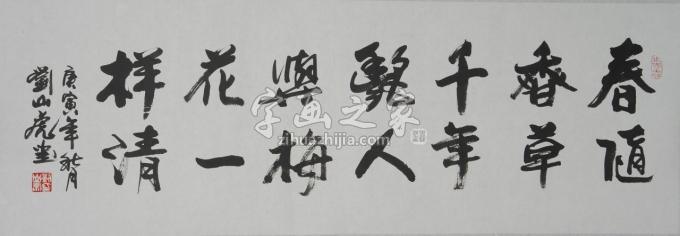 春隨
香草
千年
艷人
與梅
花一
样清
庚寅年秋月
字画之家
zihuazhijia.com